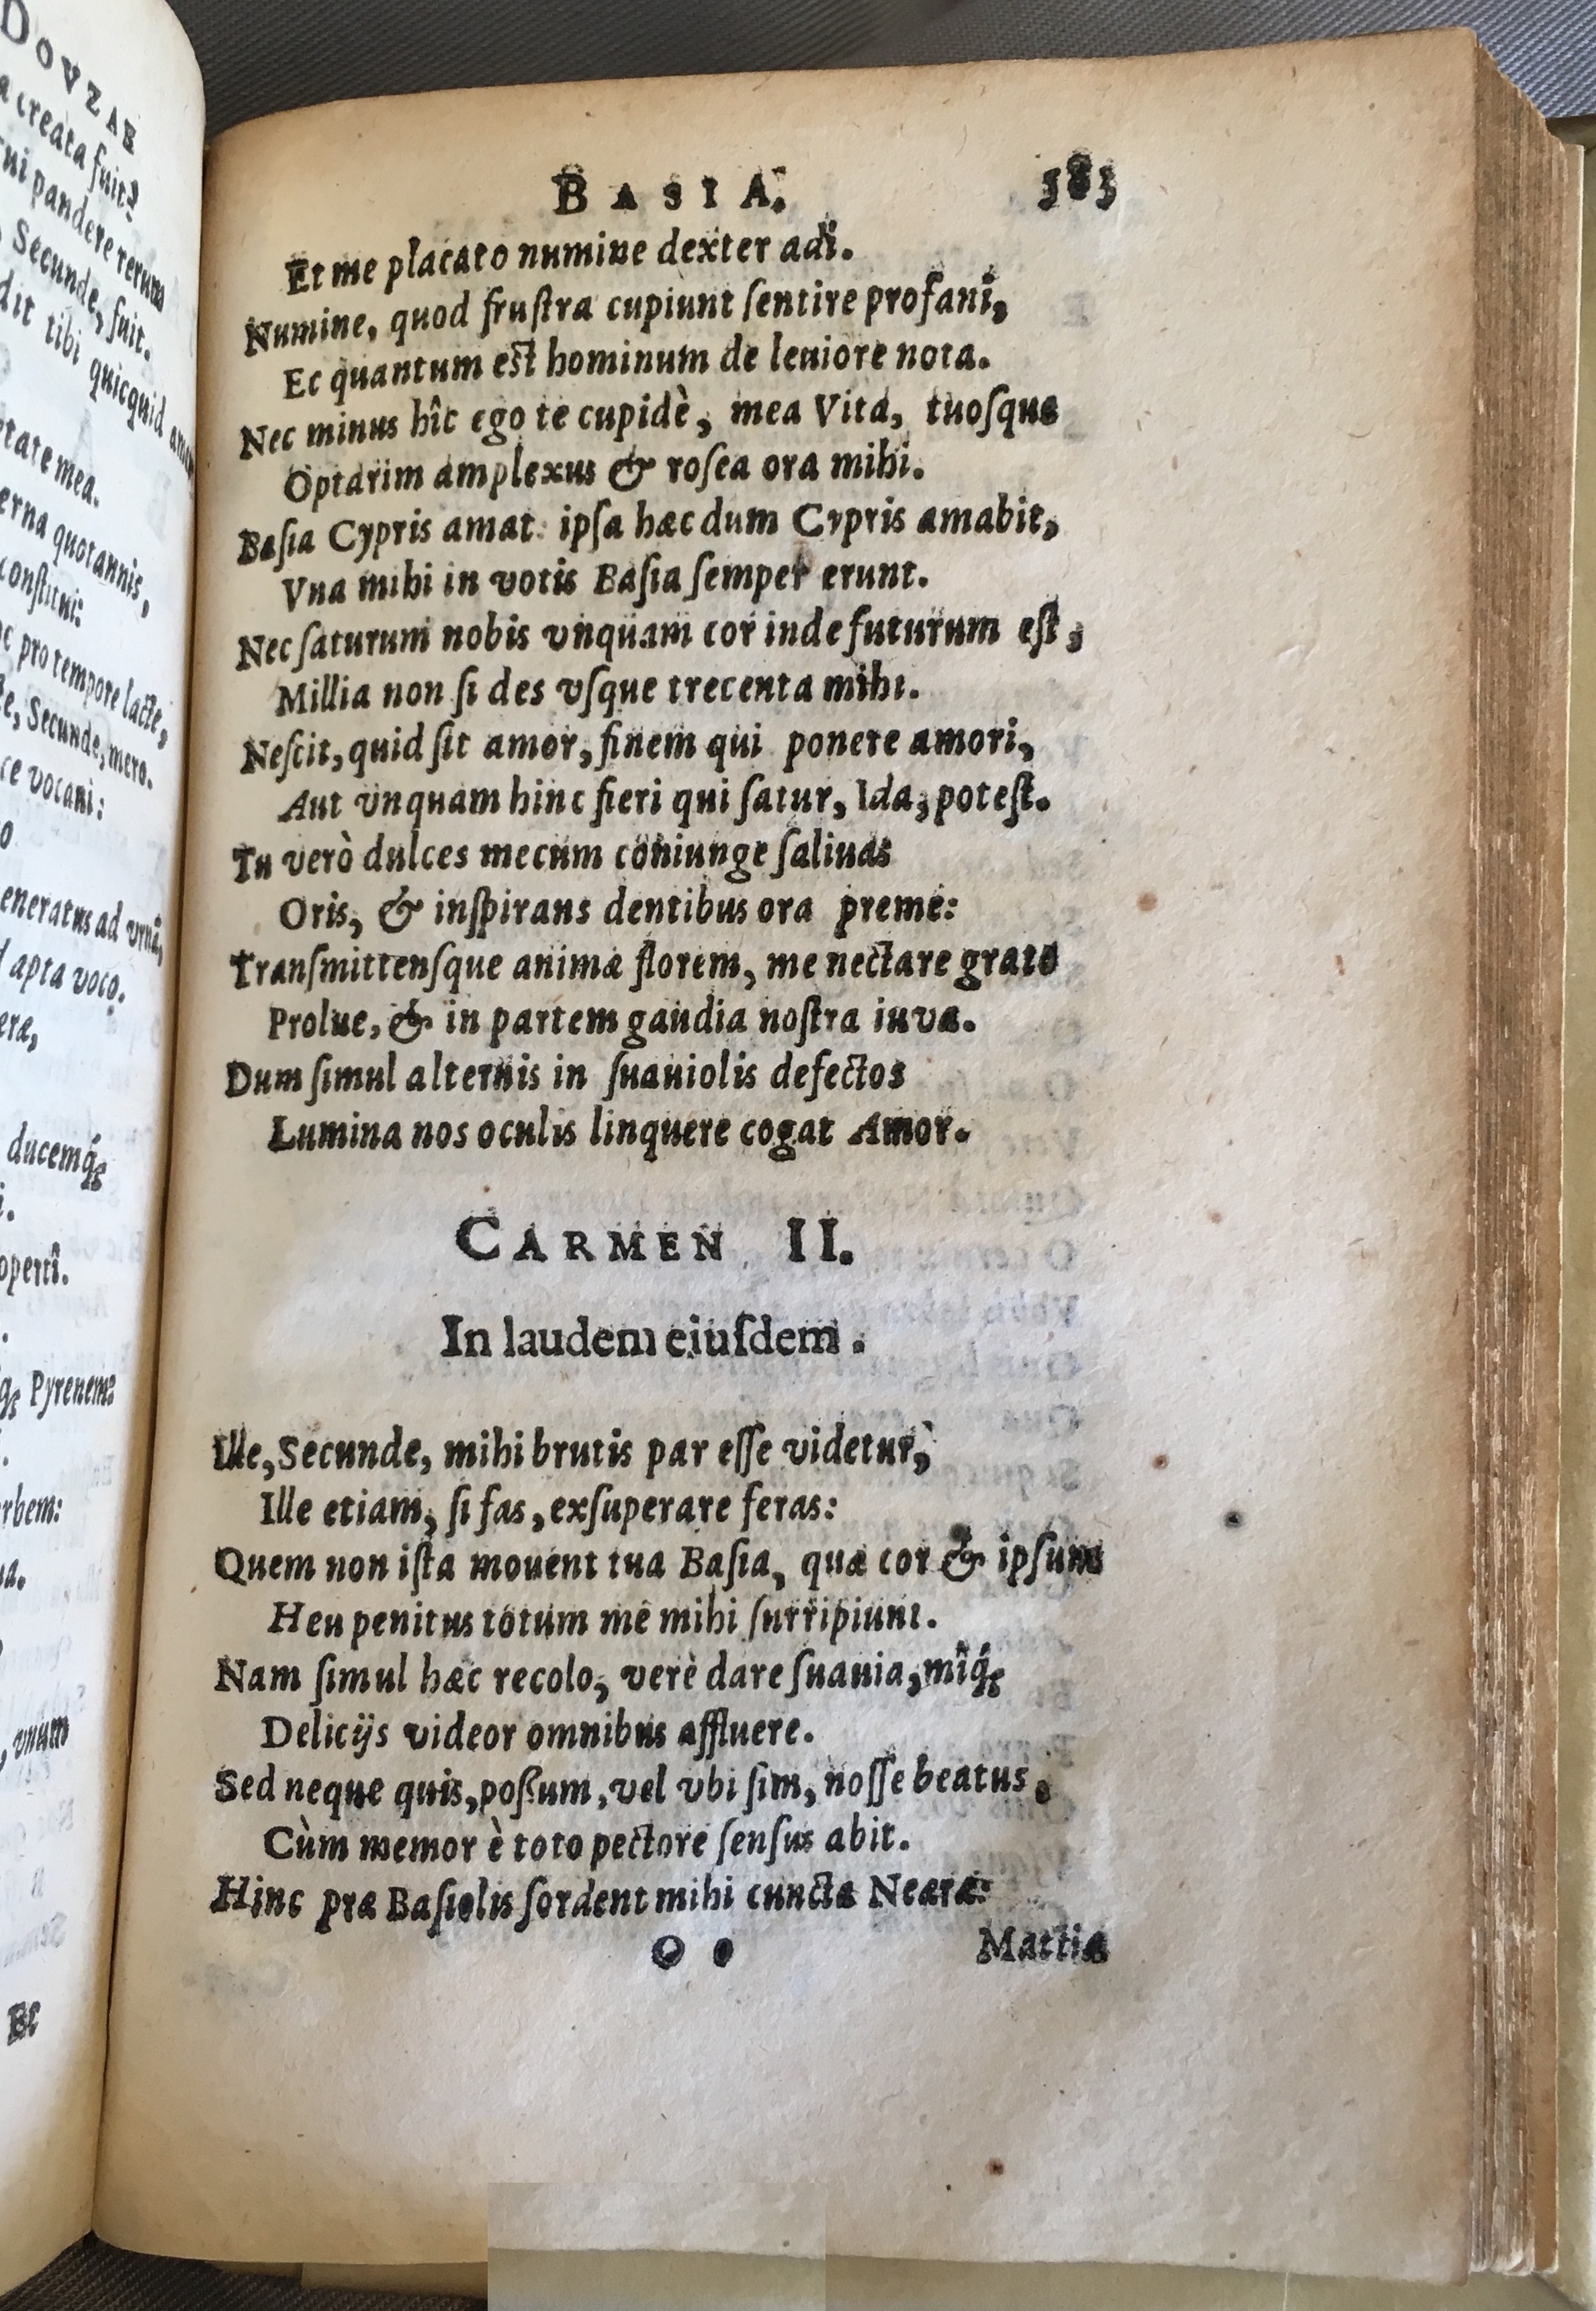 DOVZAE
a creata fuit?
rni pandere rerum
Secunde, fuit.
dit tibi quicquid
tate mea.
erna quotannis,
constitui:
c pro tempore lacte,
e, Secunde, mero.
ce vocani:
o
eneratus ad vrnã,
apta voco.
eræ,
ducemq́;
i.
operti.
q́; Pyrenem:
rbem:
ua.
, vnum
Ec
BASIA. 383
Et me placato numine dexter adi.
Numine, quod fruſtra cupiunt ſentire profani,
Ec quantum eſt hominum de leuiore nota.
Nec minus hîc ego te cupidè, mea Vita, tuoſque
Optarim amplexus & roſea ora mihi.
Baſia Cypris amat: ipſa hæc dum Cypris amabit,
Vna mihi in votis Baſia ſemper erunt.
Nec ſaturum nobis vnquam cor inde futurum eſt,
Millia non ſi des vſque trecenta mihi.
Neſcit, quid ſit amor, finem qui ponere amori,
Aut vnquam hinc fieri qui ſatur, Ida, poteſt.
Tu verò dulces mecum coniunge ſaliuas
Oris, & inſpirans dentibus ora preme:
Tranſmittenſque animæ florem, me nectare grato
Prolue, & in partem gaudia noſtra iuva.
Dum ſimul alternis in ſuauiolis defectos
Lumina nos oculis linquere cogat Amor.
CARMEN II.
In laudem eiuſdem.
Ille, Secunde, mihi brutis par eſſe videtur,
Ille etiam, ſi fas, exſuperare feras:
Quem non iſta mouent tua Baſia, quæ cor & ipſum
Heu penitus totum me mihi ſurripiunt.
Nam ſimul hæc recolo, verè dare ſuauia, mîq́;
Delicijs videor omnibus affluere.
Sed neque quis, poßum, vel vbi ſim, noſſe beatus,
Cùm memor è toto pectore ſenſus abit.
Hinc præ Baſiolis ſordent mihi cuncta Neæræ:
Mattiæ